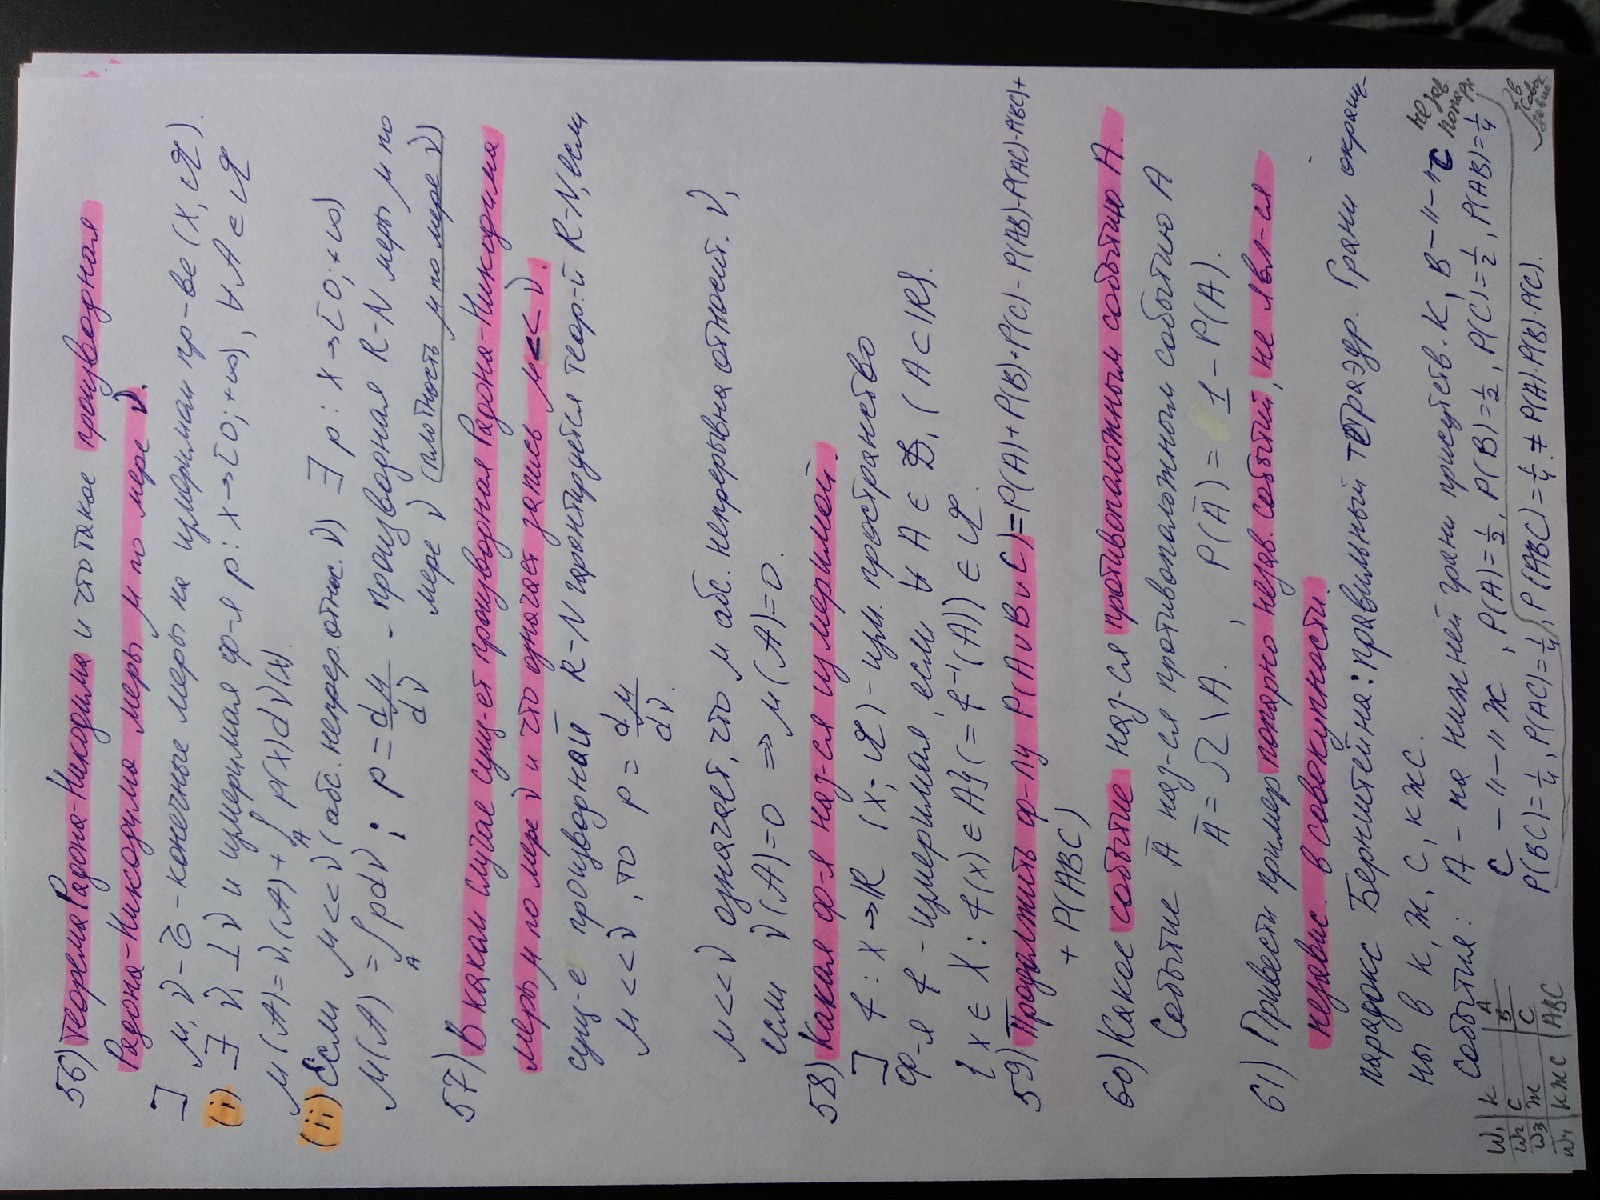 56) Теорема Радона-Никодима и что такое производная
Радона-Никодима меры μ по мере ν.
] μ, ν - σ-конечные меры на измеримом пр-ве (X, 𝒜).
(i) ∃ ν₁ ⊥ ν и измеримая ф-я p: X → [0; +∞), ∀ A ∈ 𝒜
μ(A) = ν₁(A) + ∫_A p(x) dν(x).
(ii) Если μ << ν (абс. непрер. относ. ν) ∃ p: X → [0; +∞)
μ(A) = ∫_A p dν; p = dμ/dν - производная R-N меры μ по
мере ν (плотность μ по мере ν)
57) В каком случае сущ-ет производная Радона-Никодима
меры μ по мере ν и что означает запись μ << ν.
сущ-е производной R-N гарантируется теор-й R-N, если
μ << ν, то p = dμ/dν.
μ << ν означает, что μ абс. непрерывна относит. ν,
если ν(A)=0 ⇒ μ(A)=0.
58) Какая ф-я наз-ся измеримой.
] f: X → ℝ (X, 𝒜) - изм. пространство
Ф-я f - измеримая, если ∀ A ∈ ℬ₁ (A ⊂ ℝ).
{x ∈ X : f(x) ∈ A} (= f⁻¹(A)) ∈ 𝒜.
59) Продолжить ф-лу P(A∪B∪C)=P(A)+P(B)+P(C)-P(AB)-P(AC)-P(BC)+
+ P(ABC)
60) Какое событие наз-ся противоположным событию A.
Событие Ā наз-ся противоположным событию A
Ā = Ω \ A. , P(Ā) = 1 - P(A).
61) Привести пример попарно незав. событий, не явл-ся
независ. в совокупности.
парадокс Бернштейна: правильный тетраэдр. Грани окраше-
ны в К, Ж, С, КЖС.
События: A - на нижней грани присутств. К, B - " - " С
C - " - " Ж , P(A)=½ P(B)=½, P(C)=½, P(AB)=¼
P(BC)=¼, P(AC)=¼, P(ABC)=¼ ≠ P(A)·P(B)·P(C).
незав.
попарн
ω₁ | К | A
ω₂ | С | B
ω₃ | Ж | C
ω₄ | КЖС | ABC